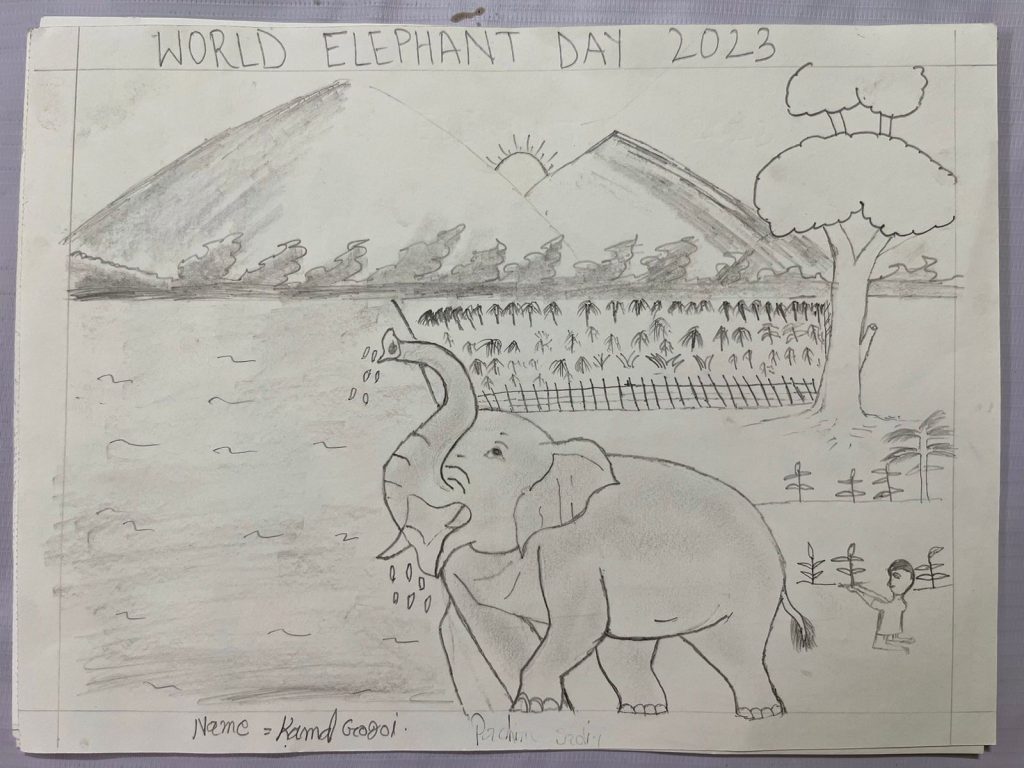 WORLD ELEPHANT DAY 2023
Name = Kamal Gogoi.